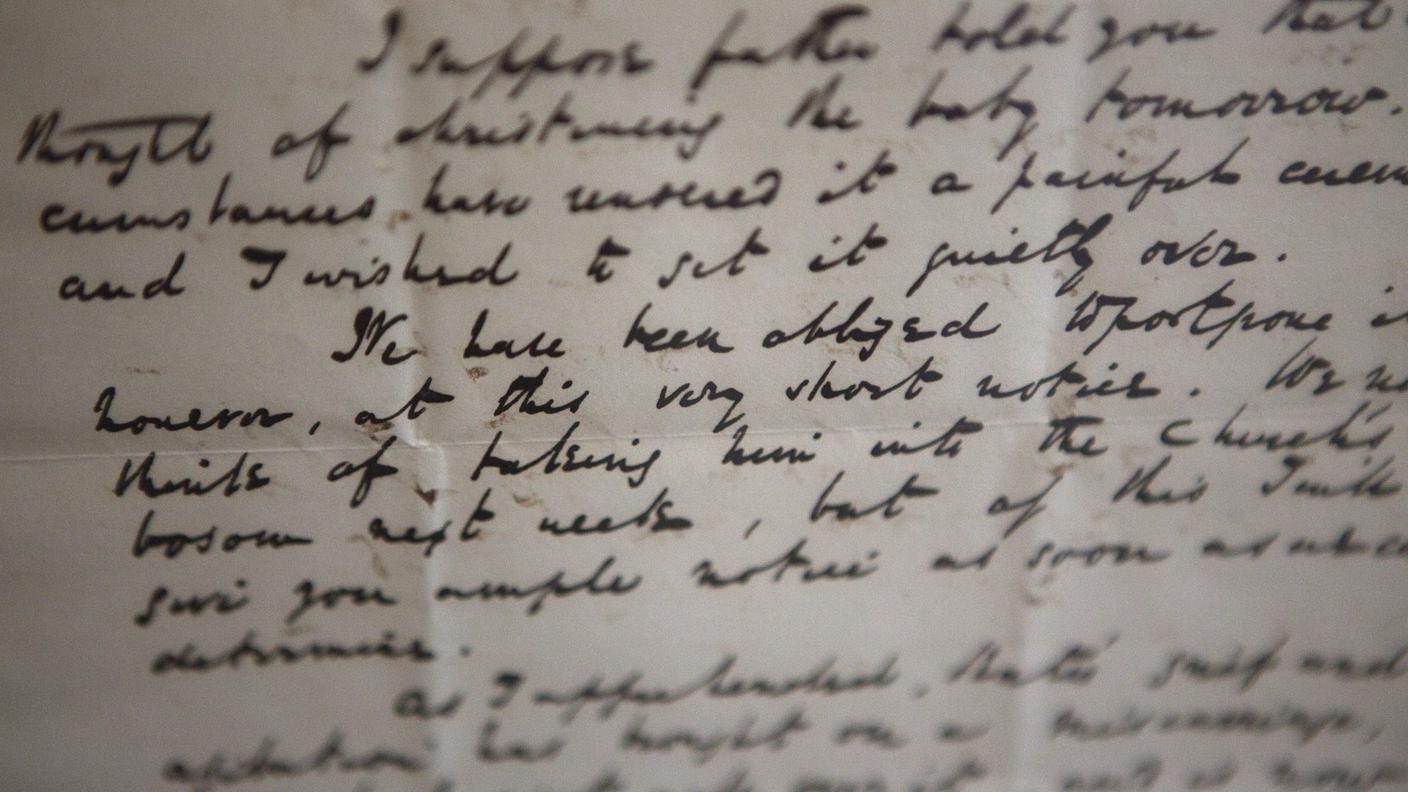 I suppose father told you that
thought of christening the baby tomorrow.
cumstances have rendered it a painful cerem
and I wished to get it quietly over.
We have been obliged to postpone i
however, at this very short notice. We no
think of taking him into the Church's
bosom next week, but of this I will
give you ample notice as soon as we c
determine.
As I apprehended, Kate's grief and
agitation has brought on a miscarriage,